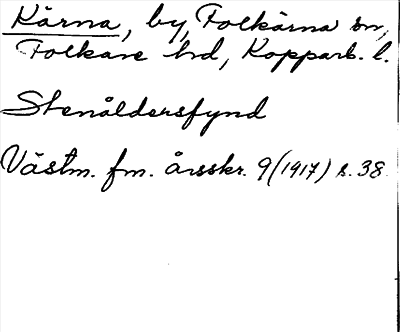 Kärna, by, Folkärna sn,
Folkare hd, Kopparb. l.
Stenåldersfynd
Västm. fm. årsskr. 9 (1917) s. 38.